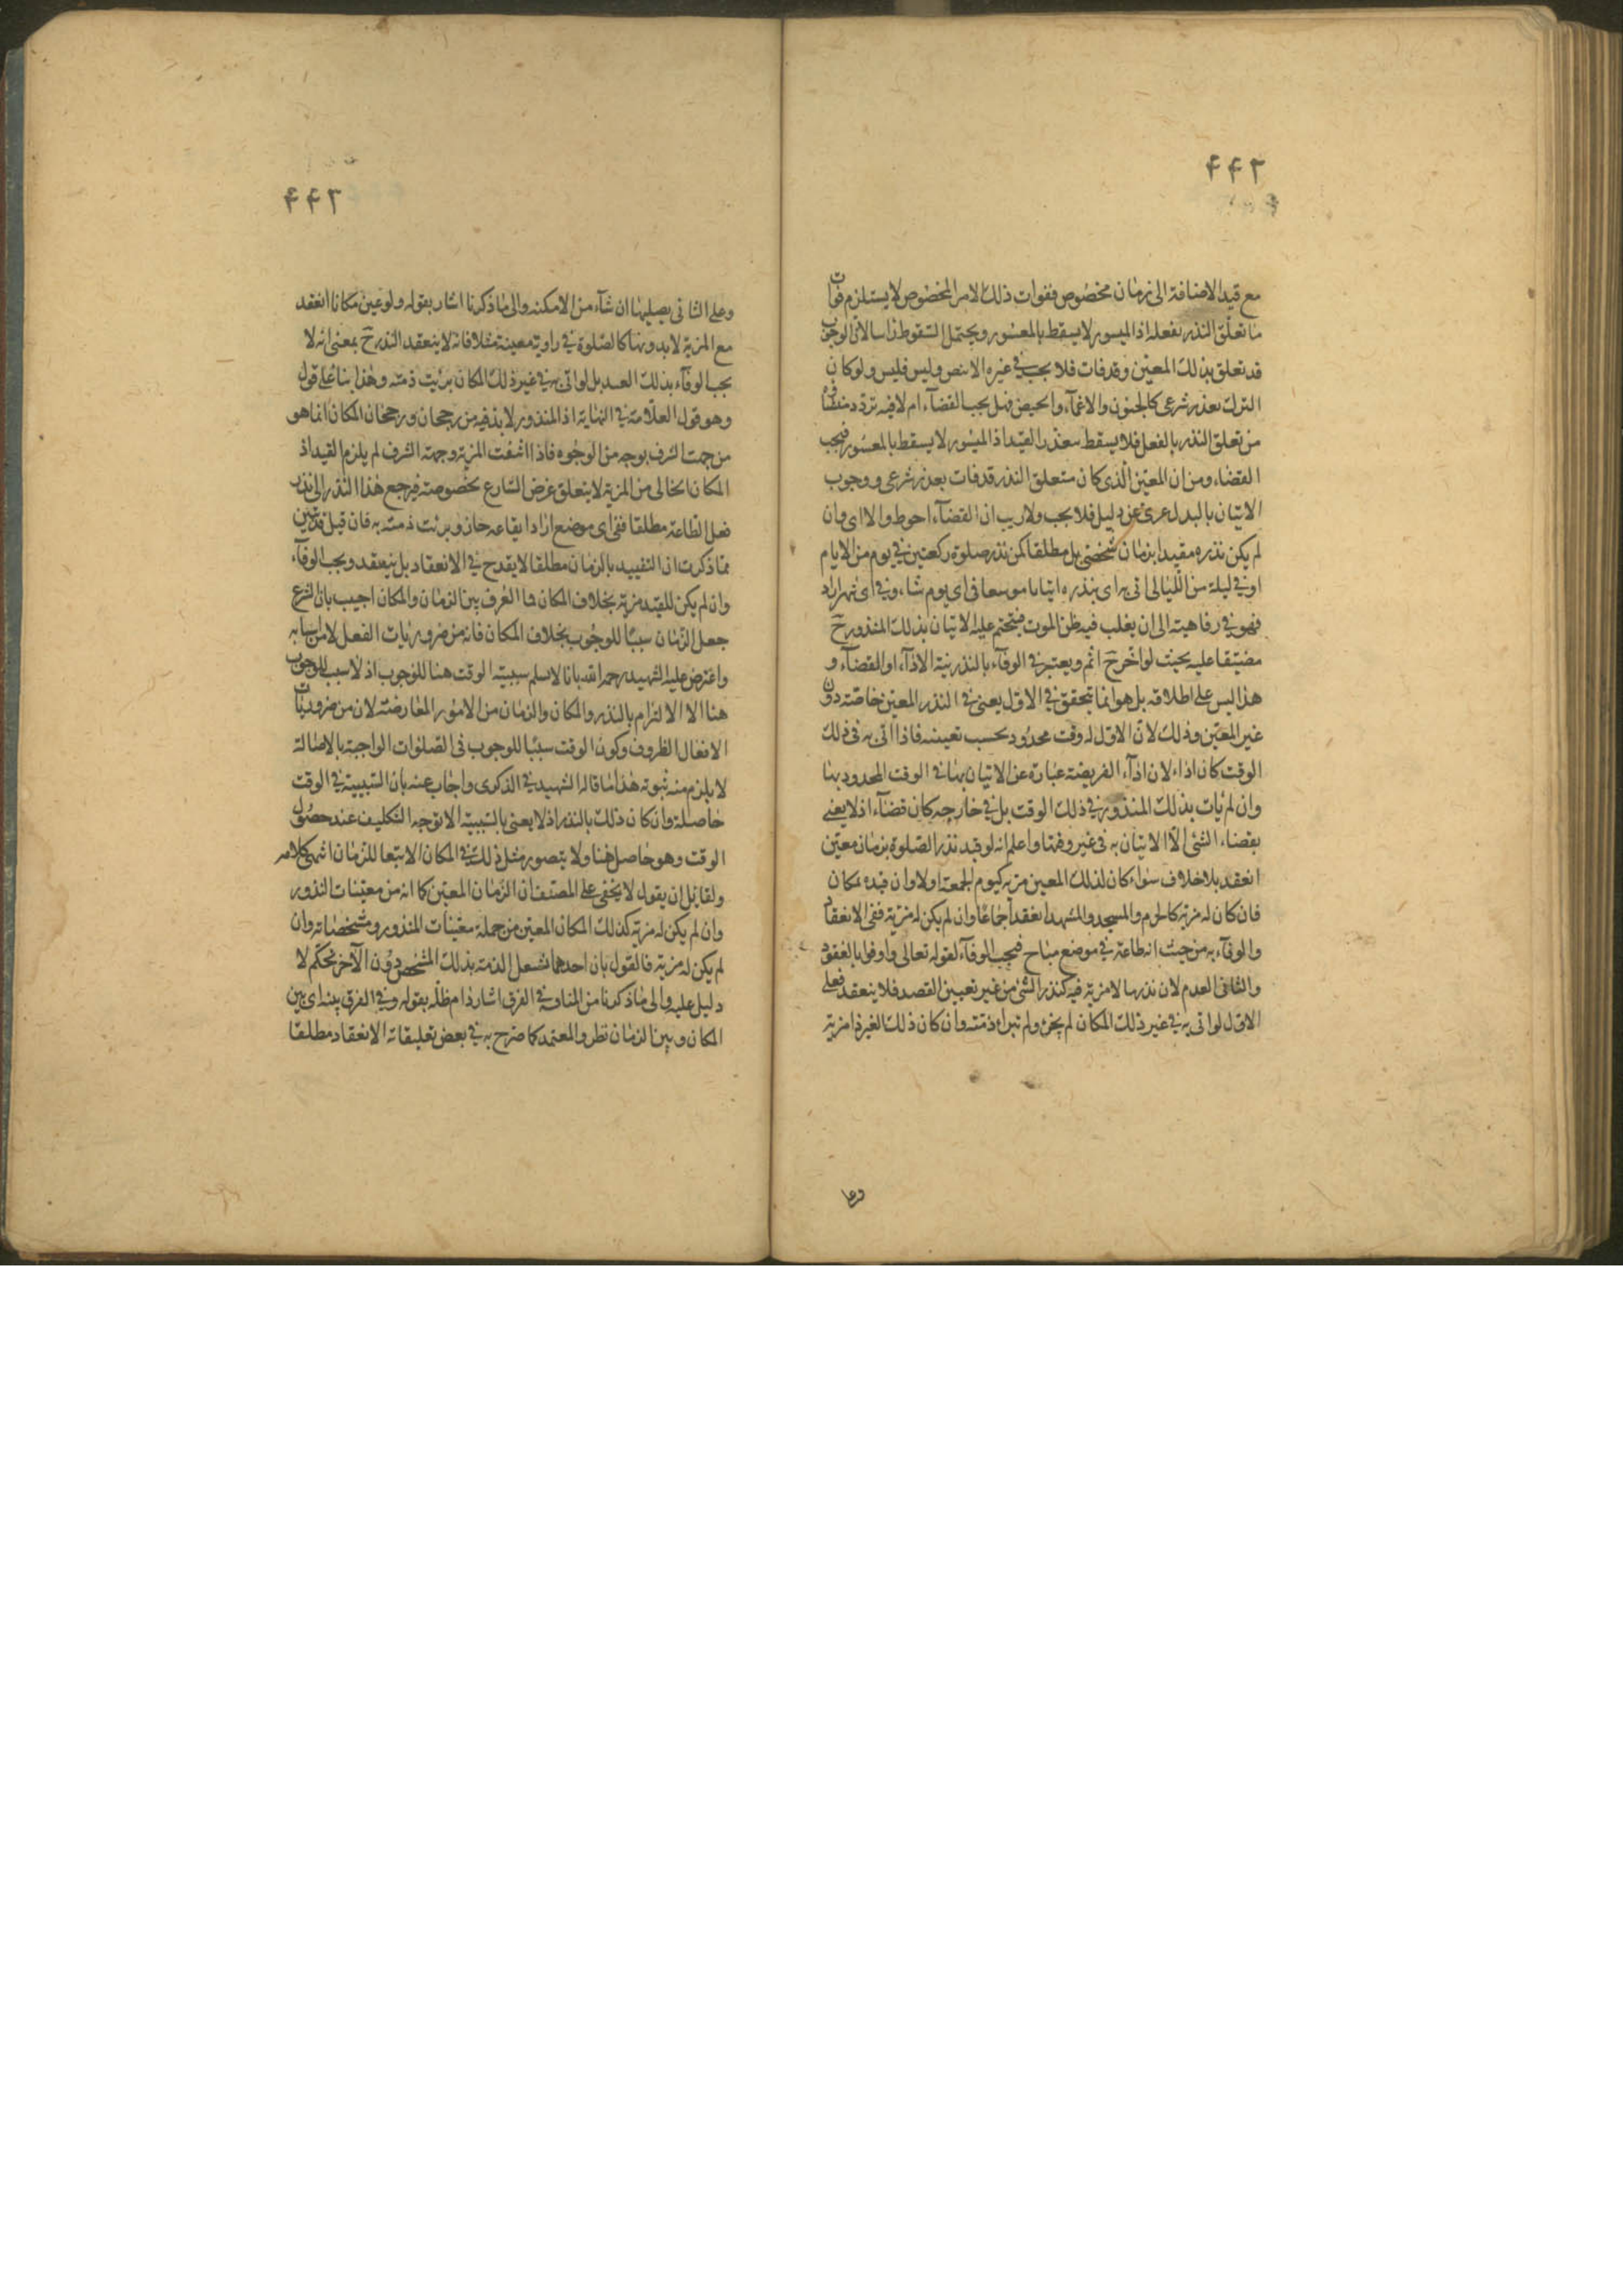 ۴۴۲
مع قيد الاضافة الى زمان مخصوص ففوات ذلك الامر المخصوص لا يستلزم فوات
ما تعلق النذر بفعله اذ الميسور لا يسقط بالمعسور ويحتمل السقوط راسا لان الوجوب
قد تعلق بذلك المعين وقد فات فلا يجب في غيره الا بنص وليس فليس ولو كان
الترك بعذر شرعى كالجنون والاغماء والحيض فهل يجب القضاء ام لا فيه تردد منشاه
من تعلق النذر بالفعل فلا يسقط بتعذر القيد اذ الميسور لا يسقط بالمعسور فيجب
القضاء ومن ان المعين الذى كان متعلق النذر قد فات بعذر شرعى ووجوب
الاتيان بالبدل عرى عن دليل فلا يجب ولا ريب ان القضاء احوط والا اى وان
لم يكن نذره مقيدا بزمان شخصى بل مطلقا كمن نذر صلوة ركعتين في يوم من الايام
او في ليلة من الليالى اتى به اى بنذره اتيانا موسعا فى اى يوم شاء وفي اى شهر اراد
فهو في رفاهية الى ان يغلب فيه ظن الموت فيتحتم عليه الاتيان بذلك المنذور ح
مضيقا عليه بحيث لو اخر ح اثم ويعتبر في الوفاء بالنذر نية الاداء او القضاء و
هذا ليس على اطلاقه بل هو انما يتحقق في الاول يعنى في النذر المعين خاصة دون
غير المعين وذلك لان الاول له وقت محدود بحسب تعيينه فاذا اتى به فى ذلك
الوقت كان اداء لان اداء الفريضة عبارة عن الاتيان بها فى الوقت المحدود بها
وان لم يات بذلك المنذور في ذلك الوقت بل في خارجه كان قضاء اذ لا يعنى
بقضاء الشئ الا الاتيان به فى غير وقتها واعلم انه لو قيد نذر الصلوة بزمان معين
انعقد بلا خلاف سواء كان لذلك المعين مزية كيوم الجمعة اولا وان قيده بمكان
فان كان له مزية كالحرم والمسجد والمشهد انعقد اجماعا وان لم يكن له مزية ففى الانعقاد
والوفاء به من حيث انه طاعة في موضع مباح فيجب الوفاء لقوله تعالى واوفوا بالعقود
والثانى العدم لان نذرها لا مزية فيه كنذر الشئ من غير تعيين القصد فلا ينعقد فعلى
الاول لو اتى به في غير ذلك المكان لم يجز ولم تبراء ذمته وان كان ذلك الغير ذا مزية
وعلى
۴۴۳
وعلى الثانى يصليها ان شاء من الامكنة والى ما ذكرنا اشار بقوله ولو عين مكانا انعقد
مع المزية لا بدونها كالصلوة في زاوية معينة مثلا فانه لا ينعقد النذر ح بمعنى انه لا
يجب الوفاء بذلك العهد بل لو اتى به في غير ذلك المكان برئت ذمته وهذا بناء على قول
وهو قول العلامة في النهاية اذ المنذور لا بد فيه من رجحان ورجحان المكان انما هو
من جهت الشرف بوجه من الوجوه فاذا انتفت المزية وجهة الشرف لم يلزم القيد اذ
المكان الخالى من المزية لا يتعلق غرض الشارع بخصوصيته فيرجع هذا النذر الى نذر
فعل الطاعة مطلقا ففى اى موضع اراد ايقاعه جاز وبرئت ذمته به فان قيل قد تبين
مما ذكرت ان التقييد بالزمان مطلقا لا يقدح في الانعقاد بل ينعقد ويجب الوفاء
وان لم يكن للقيد مزية بخلاف المكان فما الفرق بين الزمان والمكان اجيب بان الشرع
جعل الزمان سببا للوجوب بخلاف المكان فانه من ضروريات الفعل لا من اسبابه
واعترض عليه الشهيد رحمه الله بانا لا نسلم سببية الوقت هنا للوجوب اذ لا سبب للوجوب
هنا الا الالتزام بالنذر والمكان والزمان من الامور العارضة لان من ضروريات
الافعال الظروف وكون الوقت سببا للوجوب فى الصلوات الواجبة بالاصالة
لا يلزم منه ثبوته هذا ما قاله الشهيد في الذكرى واجاب عنه بان السببية في الوقت
حاصلة وان كان ذلك بالنذر اذ لا يعنى بالسببية الا توجه التكليف عند حصول
الوقت وهو حاصل هنا ولا يتصور مثل ذلك في المكان الا تبعا للزمان انتهى كلامه
ولقائل ان يقول لا يخفى على المصنف ان الزمان المعين كما انه من معينات النذور
وان لم يكن له مزية كذلك المكان المعين من جملة معينات المنذور ومشخصاته وان
لم يكن له مزية فالقول بان احدهما تشعل الذمة بذلك المشخص دون الآخر تحكم لا
دليل عليه والى ما ذكرنا من المنافى في الفرق اشار دام ظله بقوله وفي الفرق بينه اى بين
المكان وبين الزمان نظر والمعتمد كما صرح به في بعض تعليقاته الانعقاد مطلقا